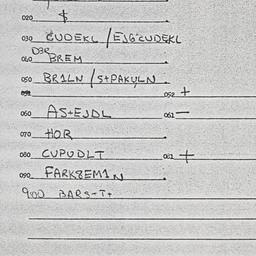 020 $
030 CUDEKL /EJG'CUDEKL
D3R
040 BREM
050 BR1LN /S+PAKULN
051 052 +
060 AS+EJDL 061 —
070 HOR
080 CUPUDLT 081 +
090 FARK8EM1N
900 BARS-T+